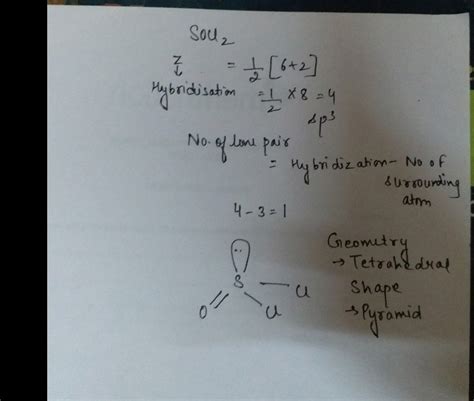 SOCl2
Z = 1/2 [6+2]
Hybridisation = 1/2 × 8 = 4
sp3
No. of lone pair
= Hybridization - No of
surrounding
atom
4 - 3 = 1
Geometry
→ Tetrahedral
Shape
→ Pyramid
S
O Cl Cl